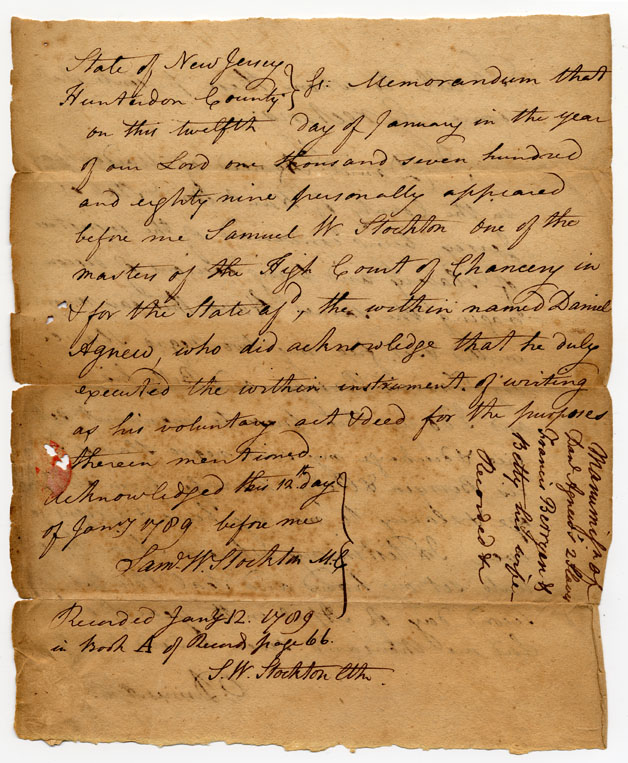 State of New Jersey
Hunterdon County } Ss: Memorandum that
on this twelfth day of January in the year
of our Lord one thousand and seven hundred
and eighty nine personally appeared
before me Samuel W. Stockton one of the
masters of the High Court of Chancery in
& for the State afd, the within named Daniel
Agnew, who did acknowledge that he duly
executed the within instrument of writing
as his voluntary act & deed for the purposes
therein mentioned.
Acknowledged this 12th day
of Jany 1789 before me
Saml. W. Stockton M.C
Recorded Jany 12. 1789
in Book A of Records page 66.
S. W. Stockton Clk.
Manumisn of
Danl Agnew's 2 Slaves
Francis Berryan &
Betty his wife
Recorded &